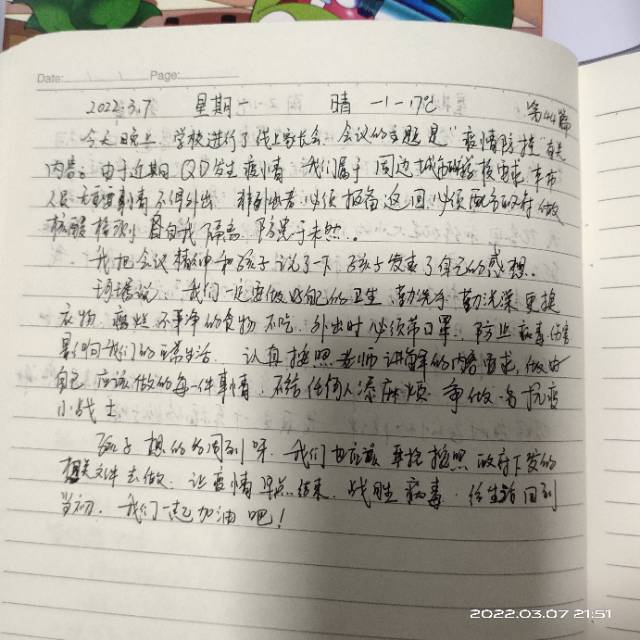 Date: Page:
2022.3.7 星期一 晴 -1-17℃ 第44篇
今天晚上 学校进行了线上家长会. 会议的主题是"疫情防控"
内容: 由于近期QD发生疫情. 我们属于周边城市 要求. 本市
人民无 事情不得外出. 非外出者必须报备 返回必须配合政府做
核酸检测 自我隔离. 防患于未然.
我把会议精神和孩子说了一下 孩子发表了自己的感想.
我们一定要做好自己的卫生. 勤洗手 勤洗澡 更换
衣物. 腐烂不干净的食物不吃. 外出时必须带口罩. 防止病毒伤害
影响我们的正常生活. 认真按照老师讲解的内容要求. 做好
自己应该做的每一件事情. 不给任何人添麻烦. 争做 抗疫
小战士
孩子想的 周到呀. 我们也应该 按照政府下发的
相关文件去做. 让疫情早点结束. 战胜病毒. 让生活回到
当初. 我们一起加油吧!
2022.03.07 21:51